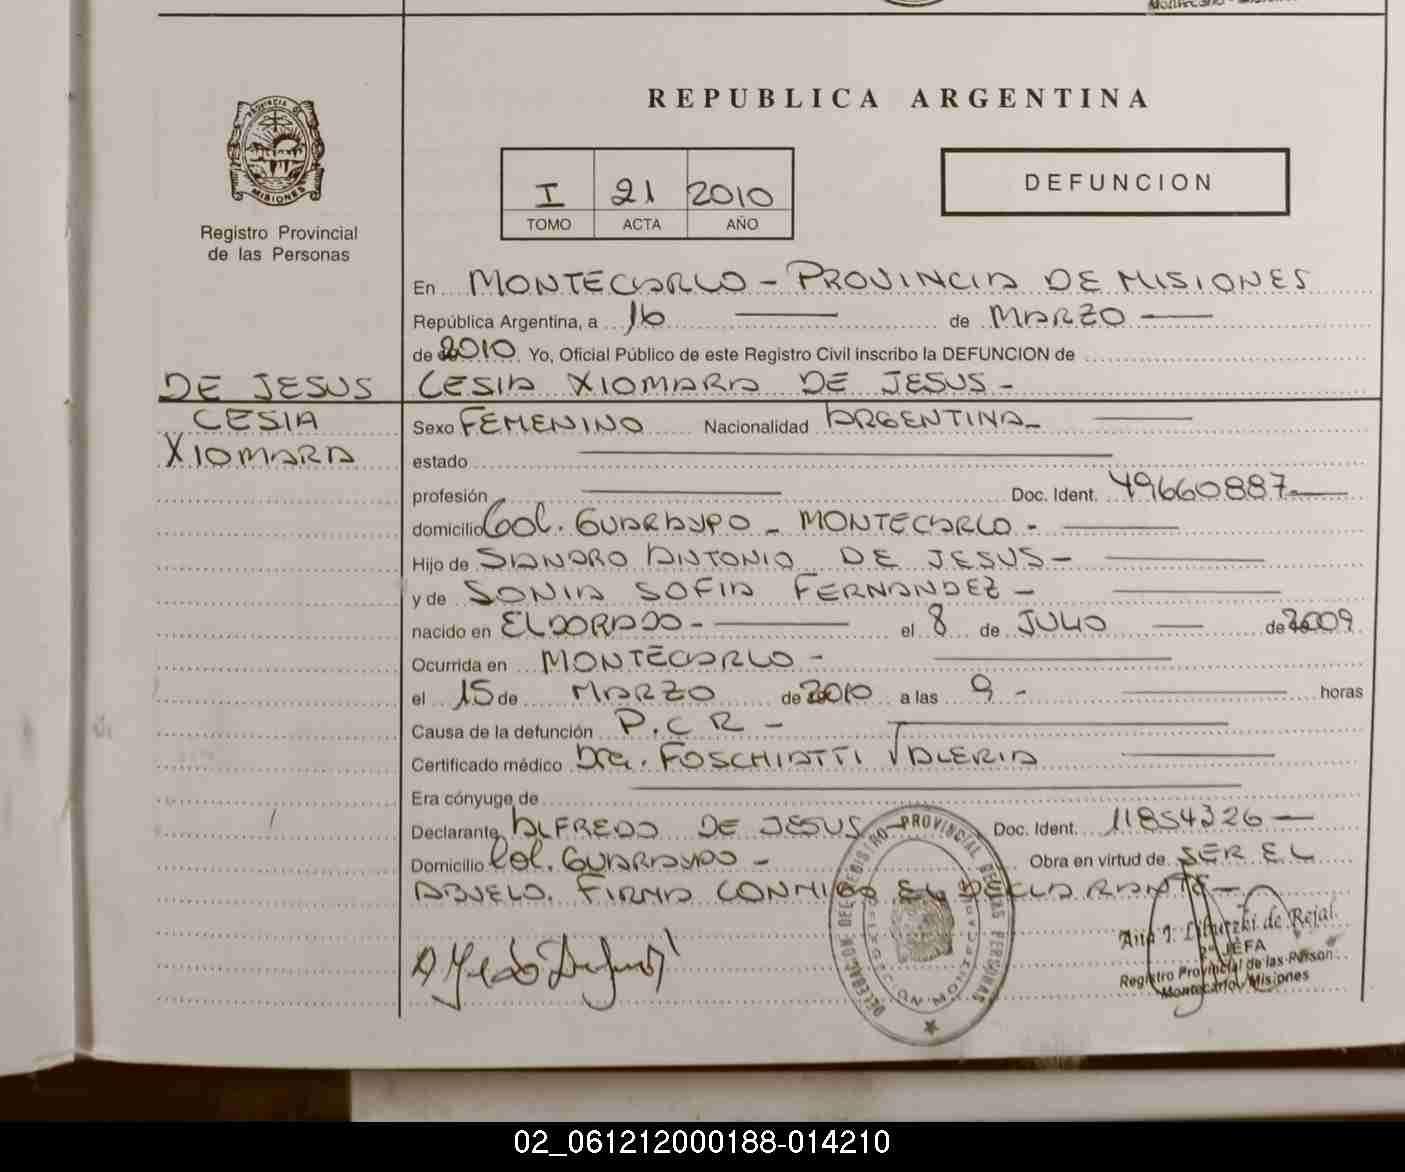 REPUBLICA ARGENTINA
PROVINCIA DE
MISIONES
Registro Provincial
de las Personas
I 21 2010
TOMO ACTA AÑO
DEFUNCION
En MONTECARLO - PROVINCIA DE MISIONES
República Argentina, a 16 de MARZO
de 2010. Yo, Oficial Público de este Registro Civil inscribo la DEFUNCION de
DE JESUS
CESIA
XIOMARA
CESIA XIOMARA DE JESUS -
Sexo FEMENINO Nacionalidad ARGENTINA -
estado
profesión Doc. Ident. 49660887 -
domicilio Col. GUARAYPO - MONTECARLO -
Hijo de SANDRO ANTONIO DE JESUS -
y de SONIA SOFIA FERNANDEZ -
nacido en ELDORADO - el 8 de JULIO de 2009
Ocurrida en MONTECARLO -
el 15 de MARZO de 2010 a las 9 - horas
Causa de la defunción P.C.R -
Certificado médico Dra. FOSCHIATTI VALERIA
Era cónyuge de
Declarante ALFREDO DE JESUS - Doc. Ident. 11854326 -
Domicilio Col. GUARAYPO - Obra en virtud de SER EL
ABUELO. FIRMA CONMIGO EL DECLARANTE -
DELEGACION DEL REGISTRO PROVINCIAL DE LAS PERSONAS
Ana I. de Rejal
JEFA
Registro Provincial de las Person.
Montecarlo Misiones
02_061212000188-014210